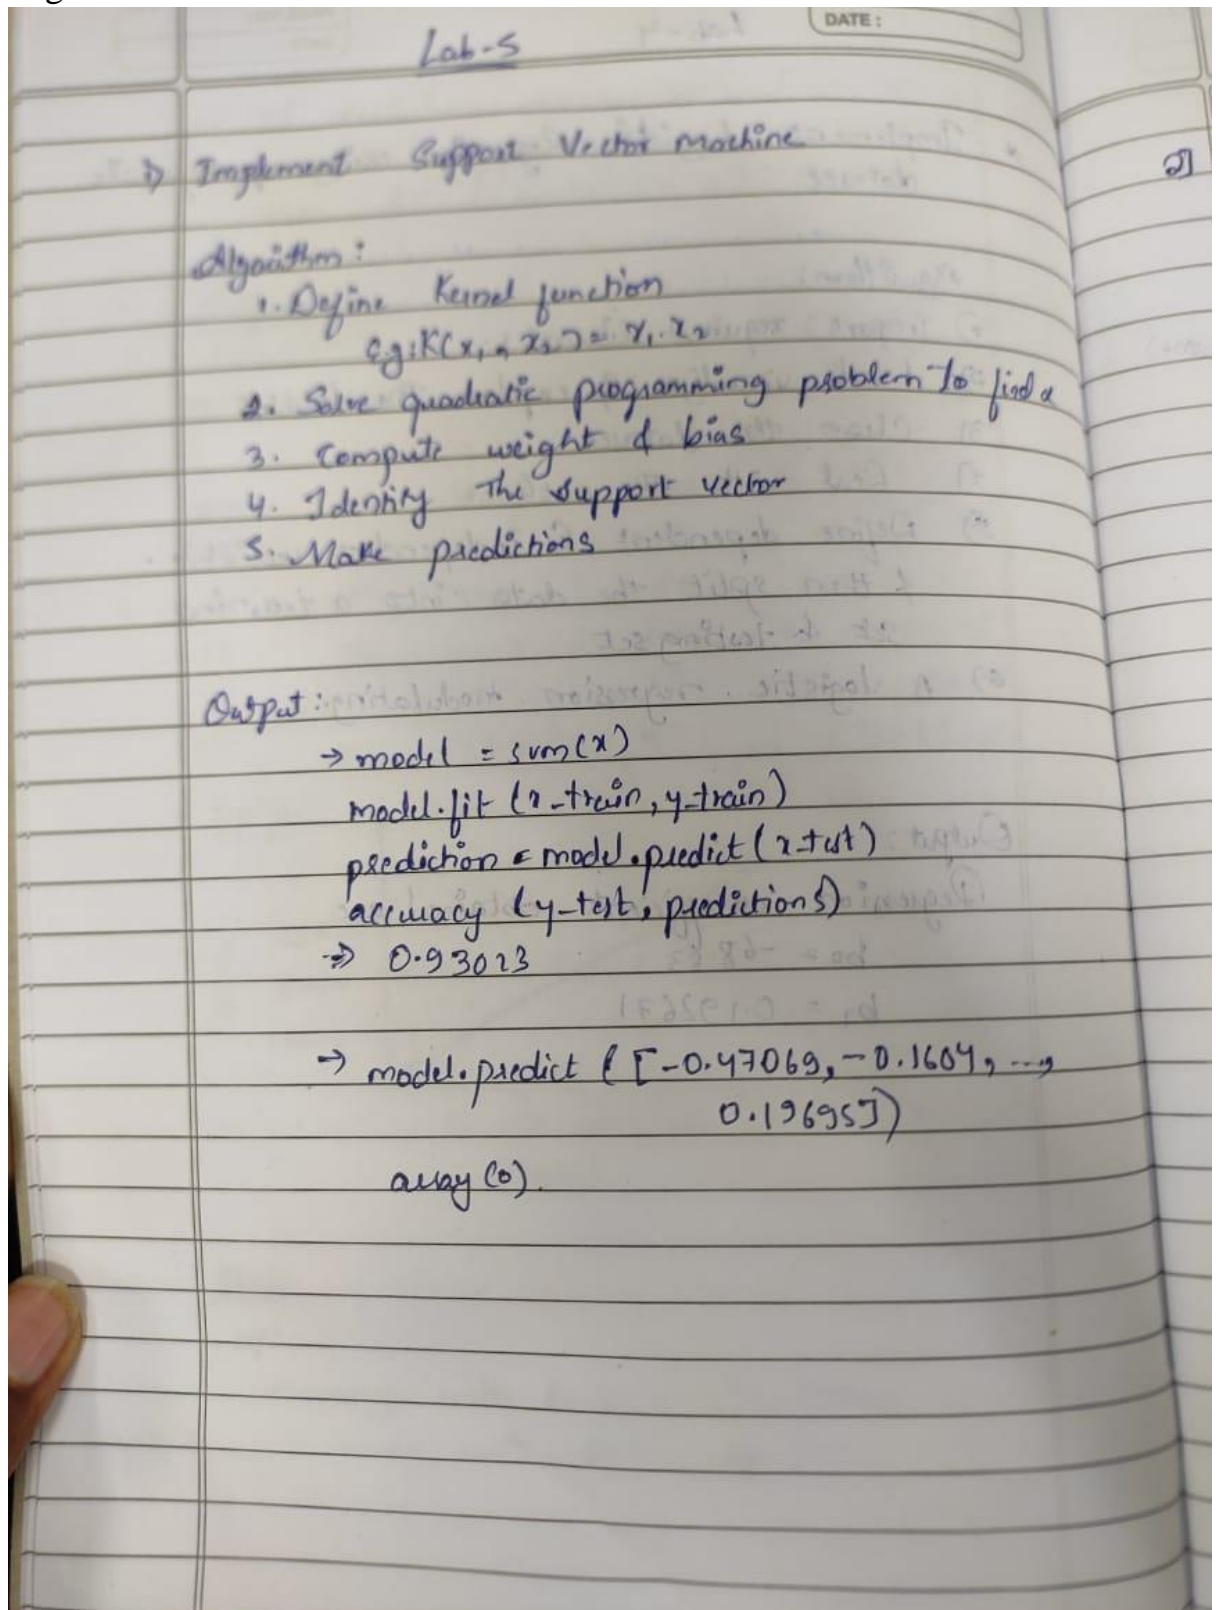 DATE :
Lab-5
1) Implement Support Vector machine
2)
Algorithm :
1. Define Kernel function
e.g: K(x1, x2) = x1. x2
2. Solve quadratic programming problem to find α
3. Compute weight & bias
4. Identify the support vector
5. Make predictions
Output :
→ model = svm(x)
model.fit (x_train, y_train)
prediction = model.predict (x_test)
accuracy (y_test, predictions)
⇒ 0.93023
→ model.predict ([-0.47069, -0.1604, ...,
0.19695])
array (0).